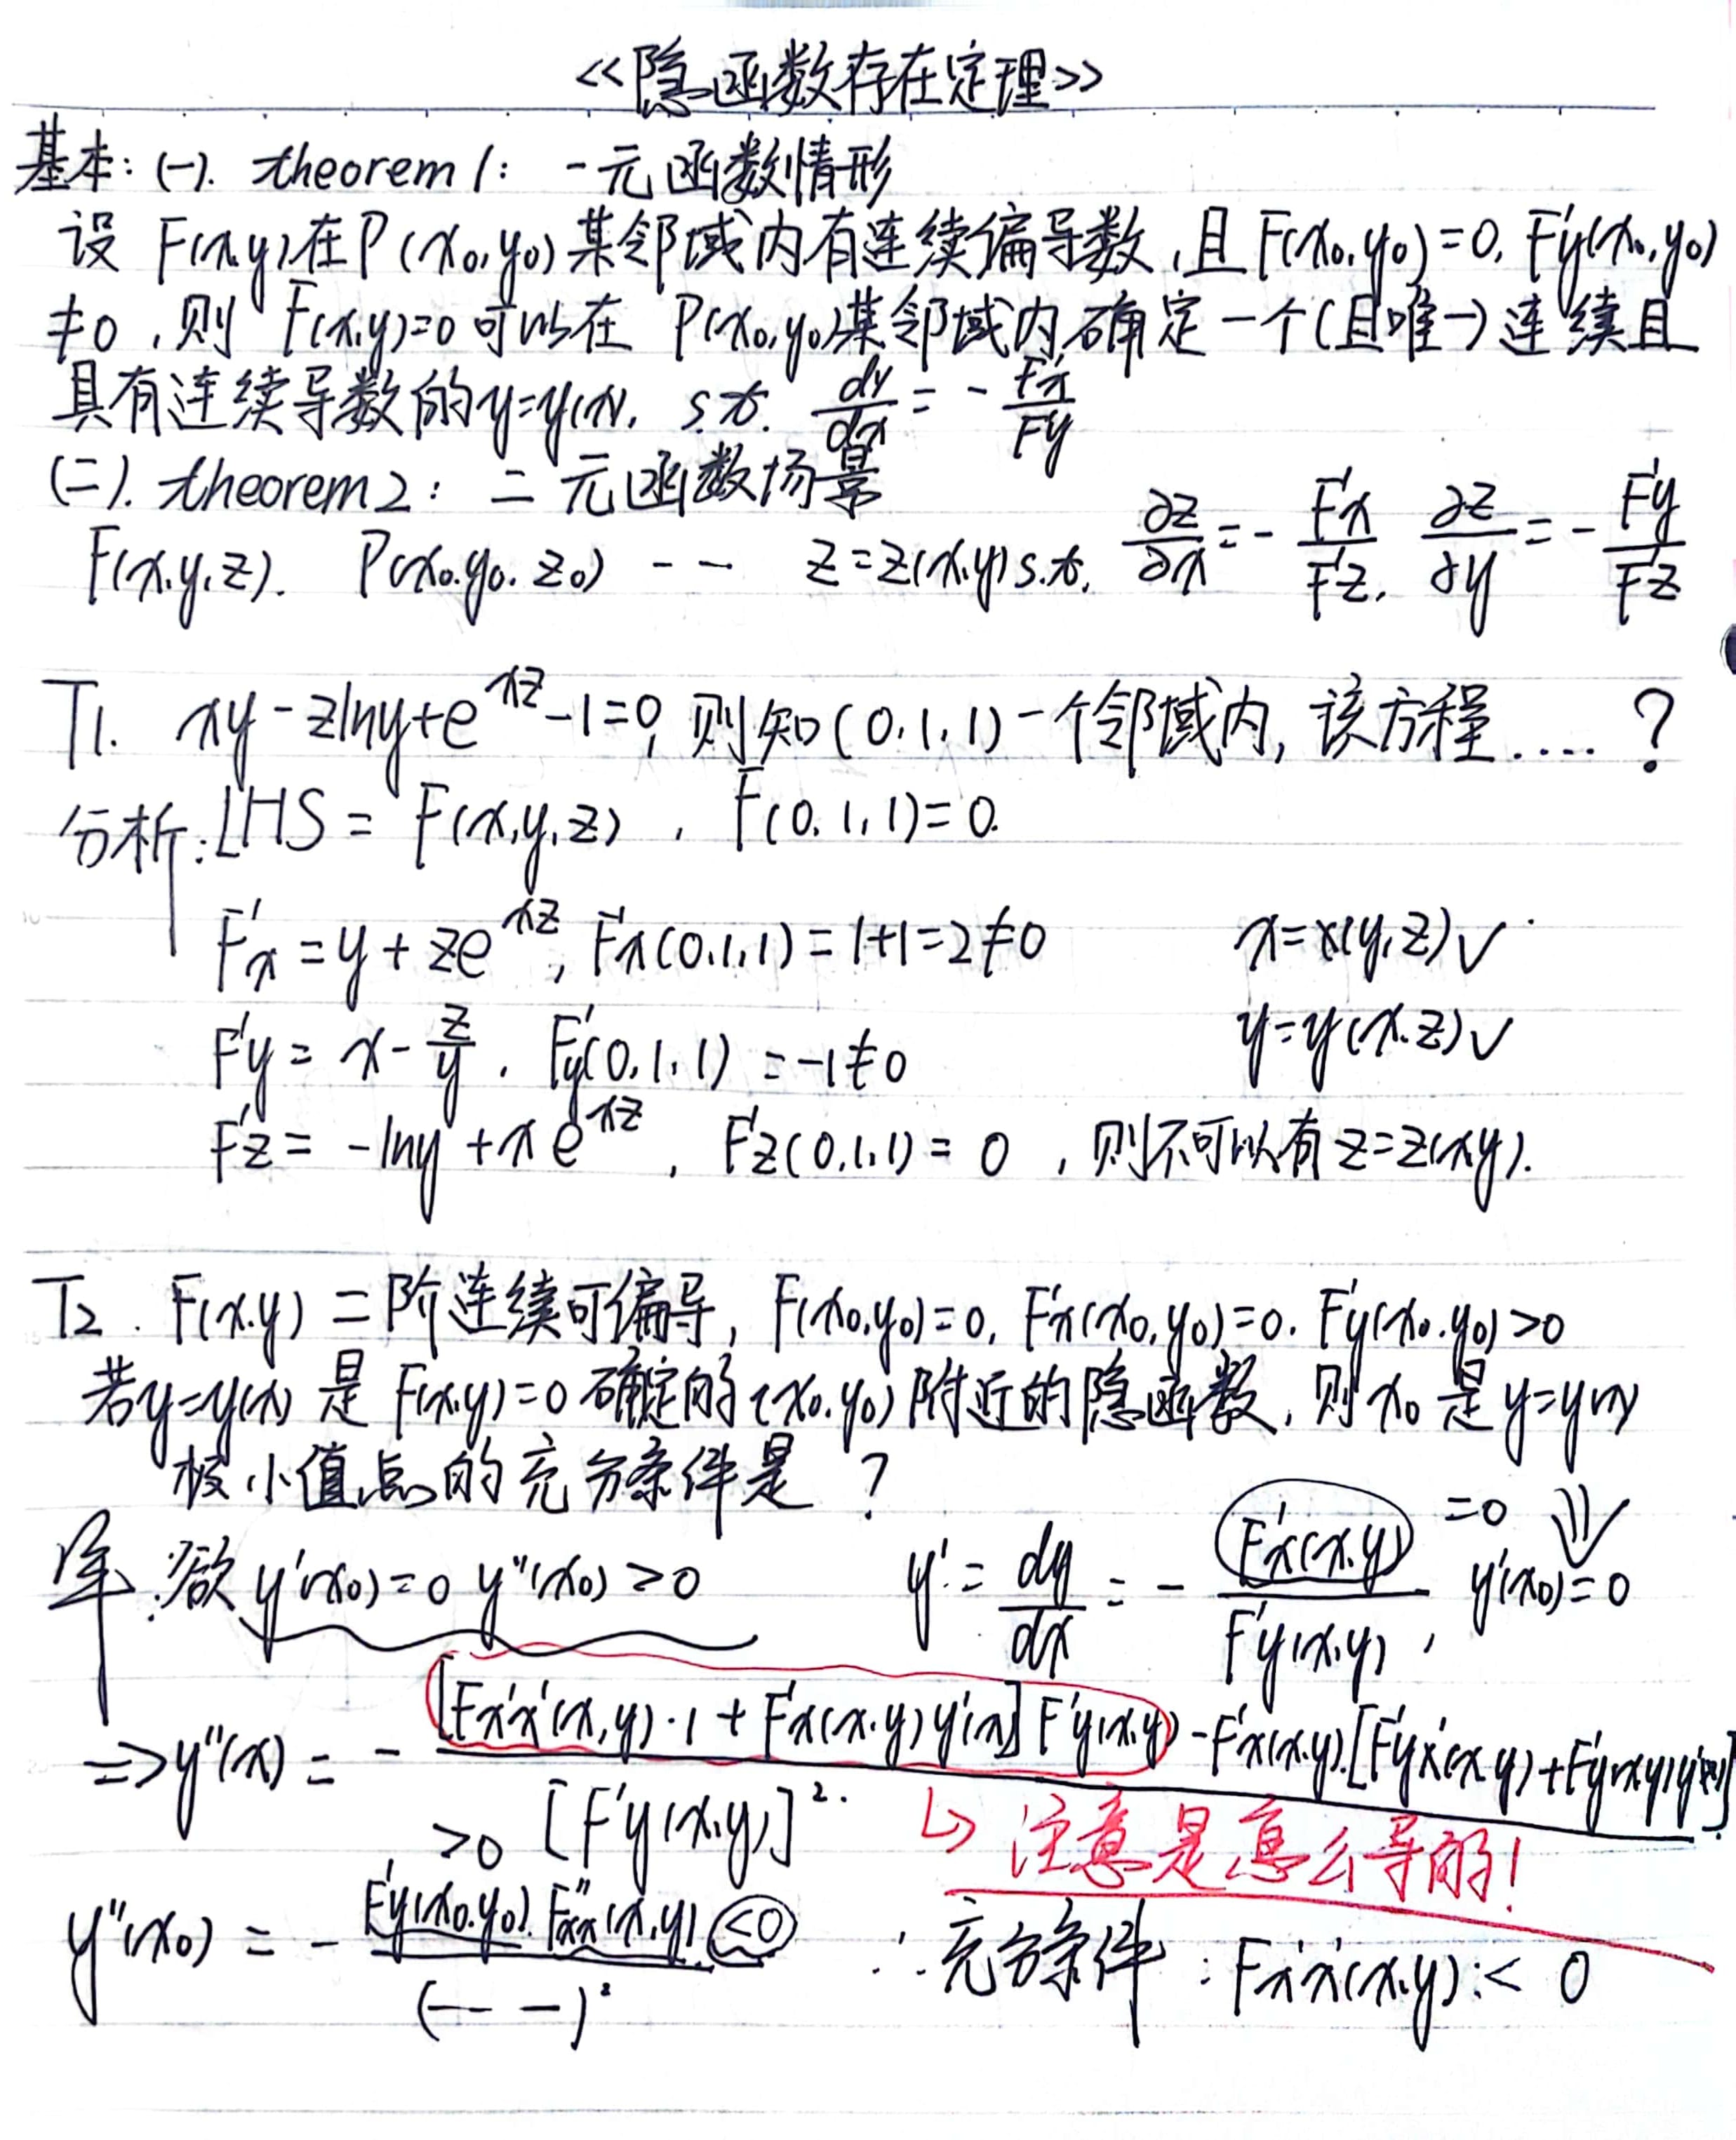 <<隐函数存在定理>>
基本: (一). theorem 1: 一元函数情形
设 F(x,y)在P(x₀,y₀)某邻域内有连续偏导数,且F(x₀,y₀)=0, F'y(x₀,y₀)
≠0 ,则 F(x,y)=0可以在 P(x₀,y₀)某邻域内确定一个(且唯一)连续且
具有连续导数的y=y(x), s.t. dy/dx = - F'x/F'y
(二). theorem 2: 二元函数场景
F(x,y,z). P(x₀,y₀,z₀) -- z=z(x,y) s.t. ∂z/∂x = - F'x/F'z, ∂z/∂y = - F'y/F'z
T1. xy-zlny+e^xz-1=0, 则知(0,1,1)一个邻域内, 该方程....?
分析: LHS = F(x,y,z) , F(0,1,1)=0.
F'x = y+ze^xz, F'x(0,1,1)=1+1=2≠0 x=x(y,z)✓
F'y = x-z/y, F'y(0,1,1) =-1≠0 y=y(x,z)✓
F'z = -lny+xe^xz, F'z(0,1,1)= 0 ,则不可以有z=z(x,y).
T2. F(x,y)二阶连续可偏导, F(x₀,y₀)=0, F'x(x₀,y₀)=0, F'y(x₀,y₀)>0
若y=y(x)是F(x,y)=0确定的(x₀,y₀)附近的隐函数, 则x₀是y=y(x)
极小值点的充分条件是 ?
解: 欲y'(x₀)=0 y''(x₀)>0 y' = dy/dx = - F'x(x,y)/F'y(x,y), =0 ⇓ y'(x₀)=0
⇒y''(x) = - [F'x'x(x,y)·1 + F'x(x,y)y'(x)]F'y(x,y) - F'x(x,y).[F'y'x(x,y)+F'y(x,y)y'(x)] / [F'y(x,y)]².
↳ 注意是怎么导的!
y''(x₀) = - F'y(x₀,y₀) >0 · F''xx(x,y) <0 / (-- -)²
∴充分条件 : F'x'x(x,y) < 0